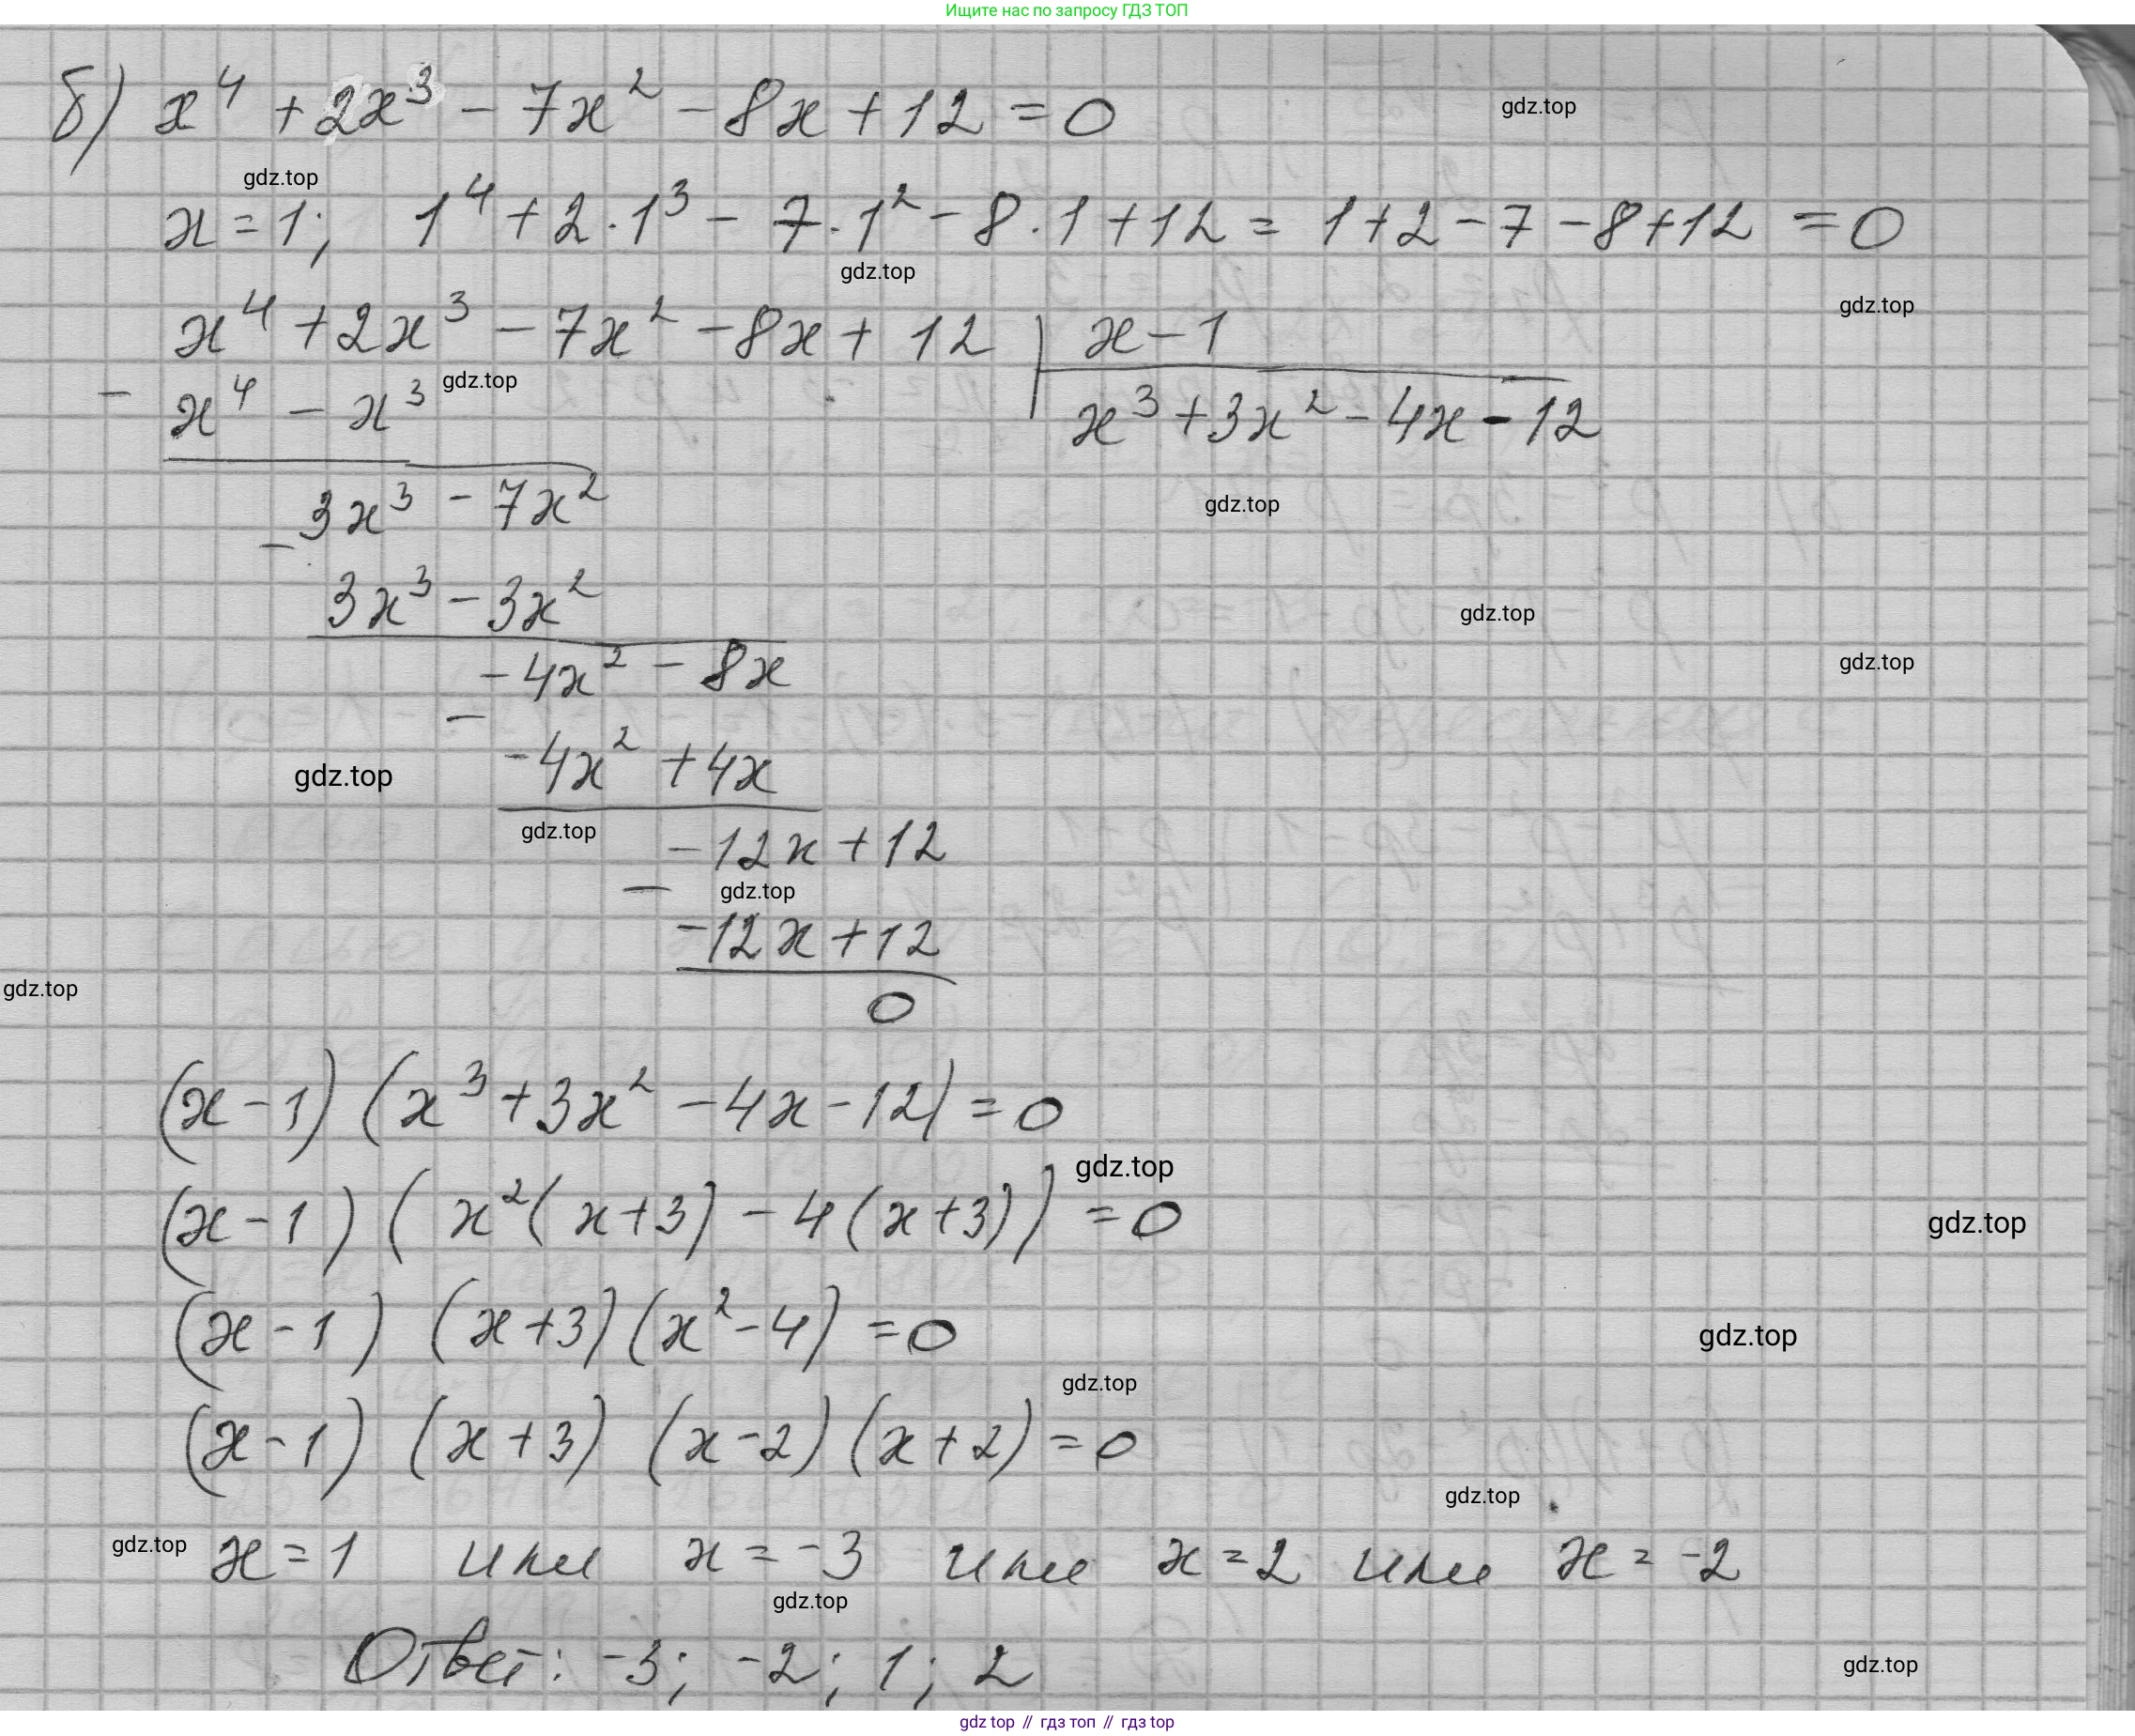 Ищите нас по запросу ГДЗ ТОП
б) x⁴ + 2x³ − 7x² − 8x + 12 = 0
gdz.top
gdz.top
x = 1; 1⁴ + 2·1³ − 7·1² − 8·1 + 12 = 1 + 2 − 7 − 8 + 12 = 0
gdz.top
gdz.top
x⁴ + 2x³ − 7x² − 8x + 12 | x − 1
gdz.top
− x⁴ − x³ | x³ + 3x² − 4x − 12
3x³ − 7x²
gdz.top
−
3x³ − 3x²
gdz.top
−4x² − 8x
gdz.top
−
−4x² + 4x
gdz.top
gdz.top
−12x + 12
− gdz.top
−12x + 12
gdz.top
0
(x − 1) (x³ + 3x² − 4x − 12) = 0
gdz.top
(x − 1) (x²(x + 3) − 4(x + 3)) = 0
gdz.top
(x − 1) (x + 3) (x² − 4) = 0
gdz.top
gdz.top
(x − 1) (x + 3) (x − 2) (x + 2) = 0
gdz.top
gdz.top
x = 1 или x = −3 или x = 2 или x = −2
gdz.top
Ответ: −3; −2; 1; 2
gdz.top
gdz top // гдз топ // gdz top